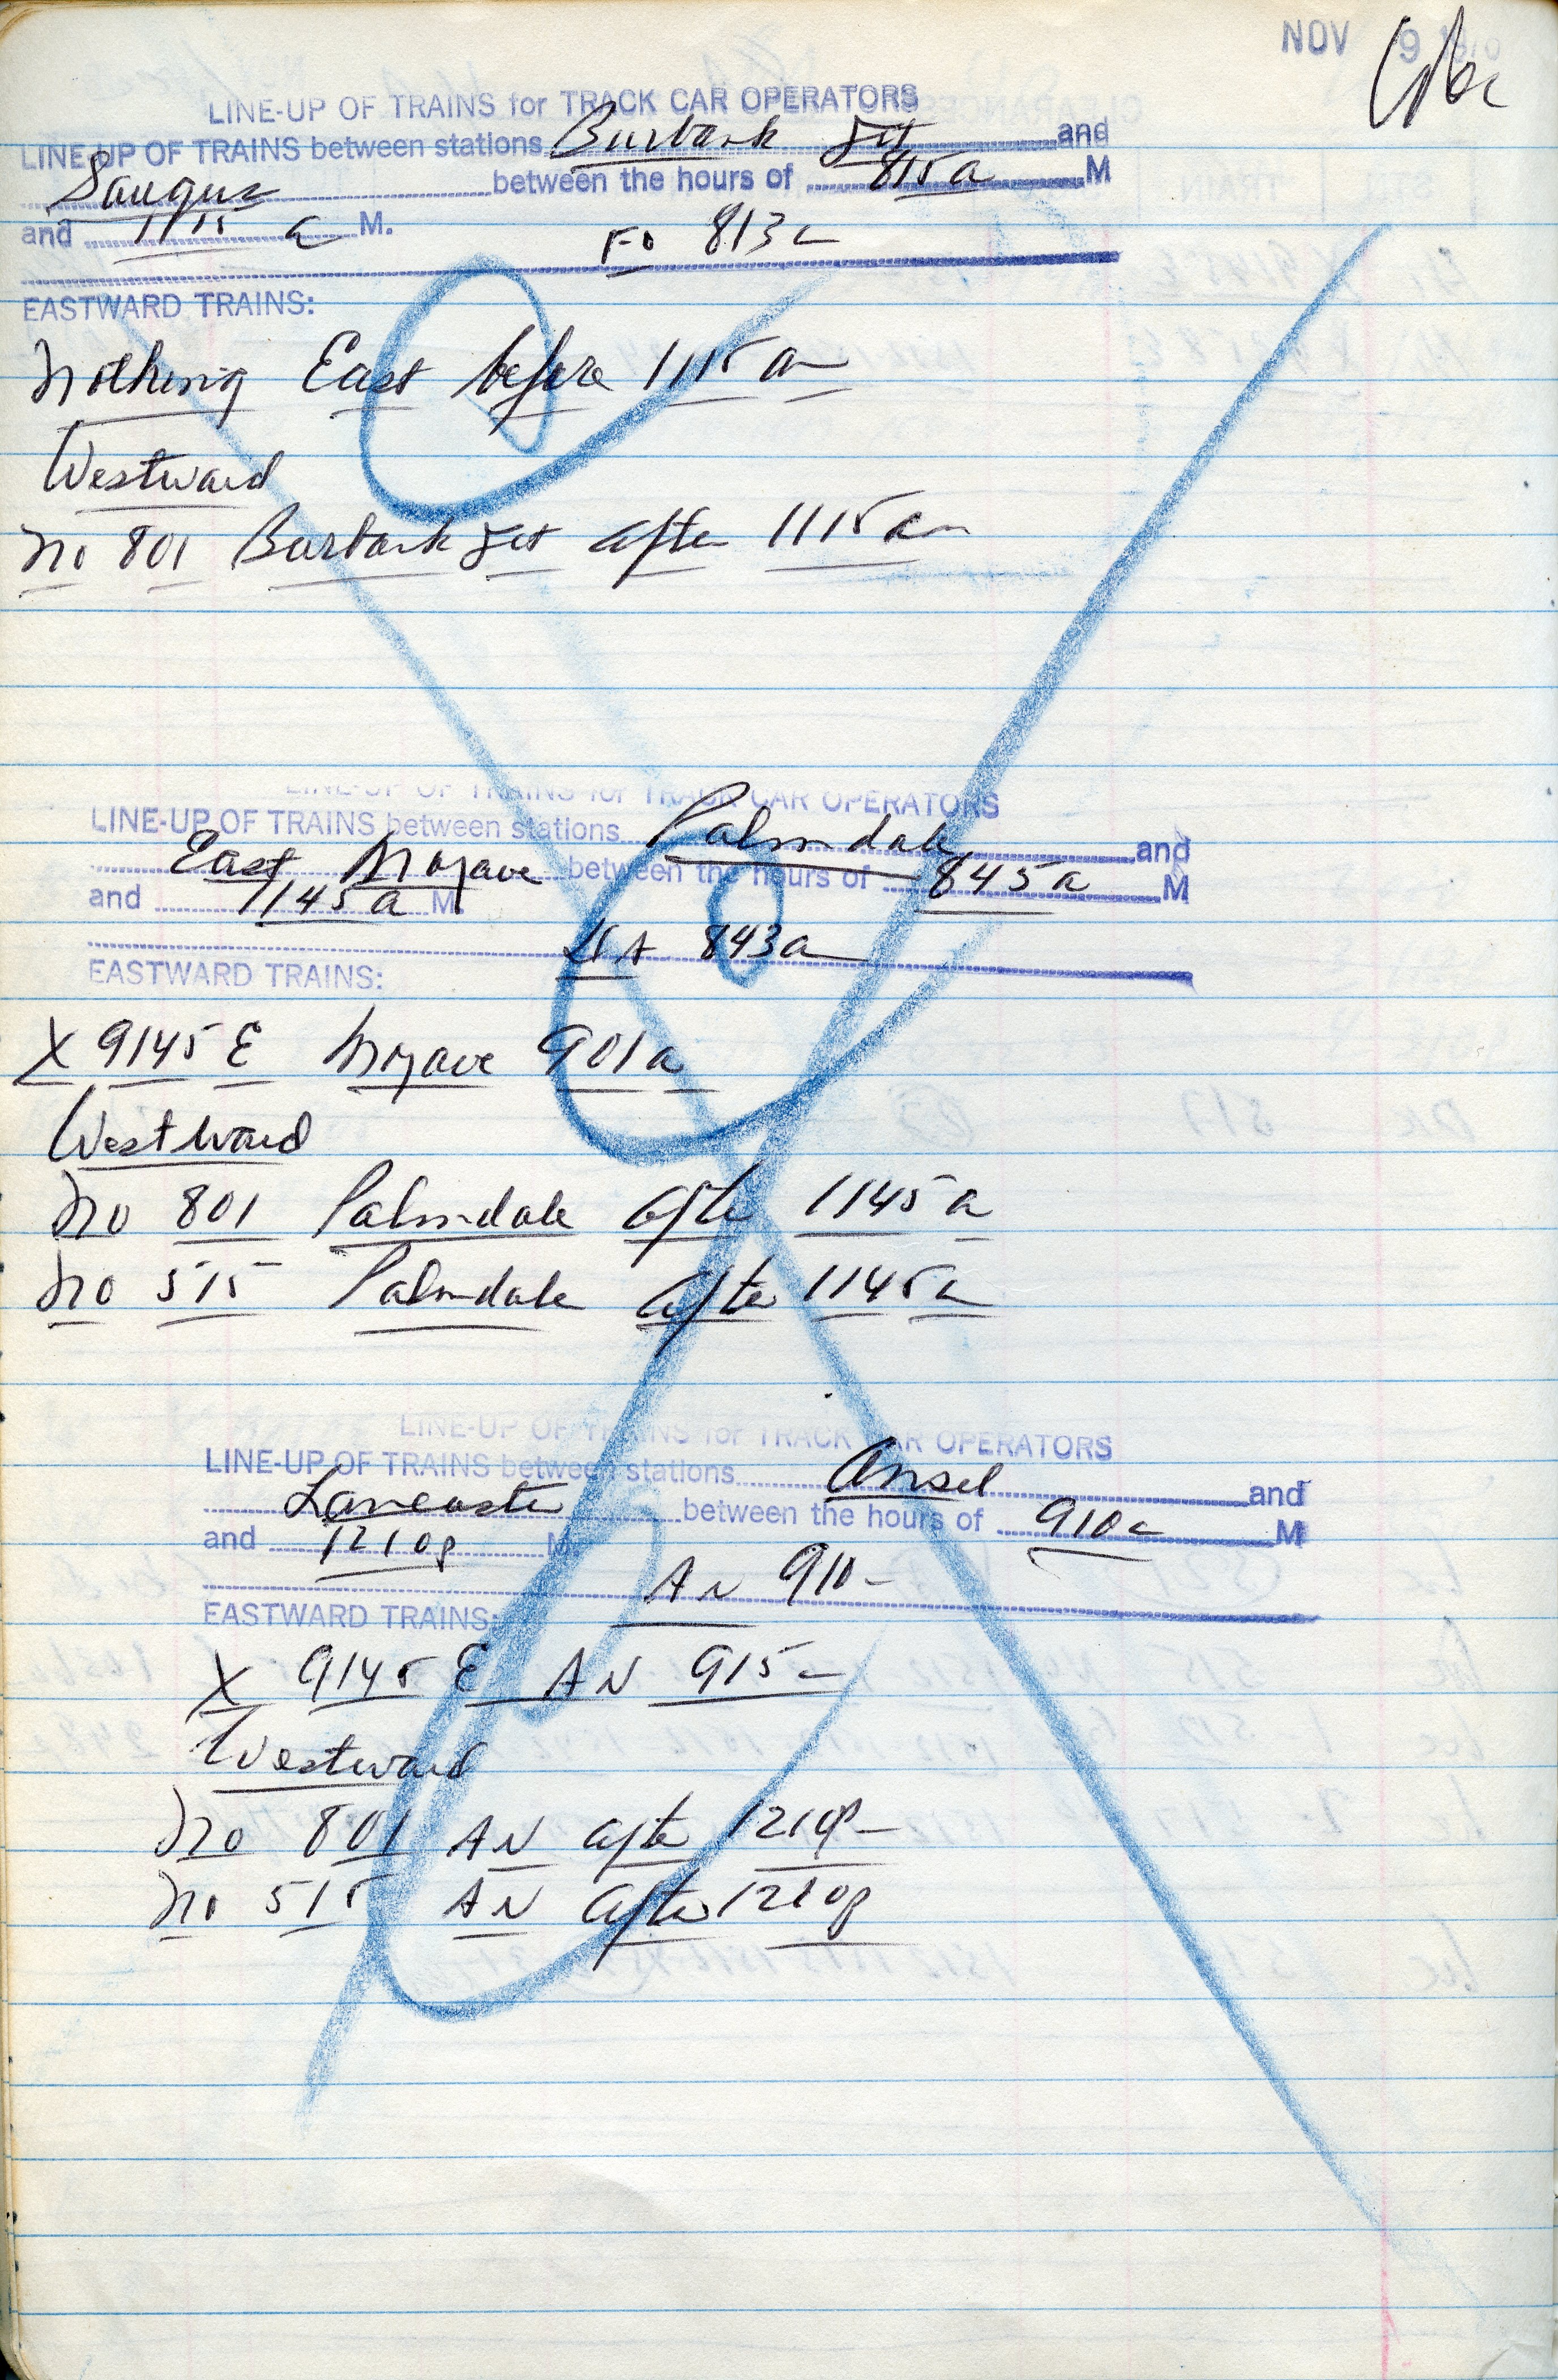 NOV 9
LINE-UP OF TRAINS for TRACK CAR OPERATORS
LINE-UP OF TRAINS between stations Burbank Jct and
Saugus between the hours of 815a M
and 1115 a M. FO 813a
EASTWARD TRAINS:
Nothing East before 1115 am
Westward
No 801 Burbank Jct after 1115 am
LINE-UP OF TRAINS for TRACK CAR OPERATORS
LINE-UP OF TRAINS between stations Palmdale and
East Mojave between the hours of 845a M
and 1145a M.
843a
EASTWARD TRAINS:
X 9145 E Mojave 901a
Westward
No 801 Palmdale after 1145 a
No 515 Palmdale after 1145a
LINE-UP OF TRAINS for TRACK CAR OPERATORS
LINE-UP OF TRAINS between stations Ansel and
Lancaster between the hours of 910a M
and 1210p M.
AN 910-
EASTWARD TRAINS:
X 9145 E AN 915a
Westward
No 801 AN after 1210p
No 515 AN after 1210p